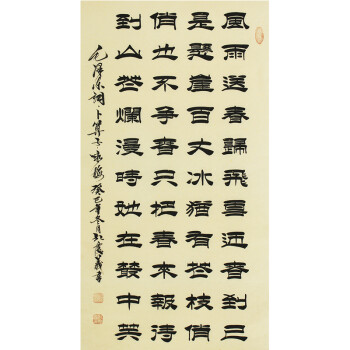 風雨送春歸飛雪迎春到已
是懸崖百丈冰猶有花枝俏
俏也不爭春只把春來報待
到山花爛漫時她在叢中笑
毛澤東詞卜算子詠梅癸巳年冬月書